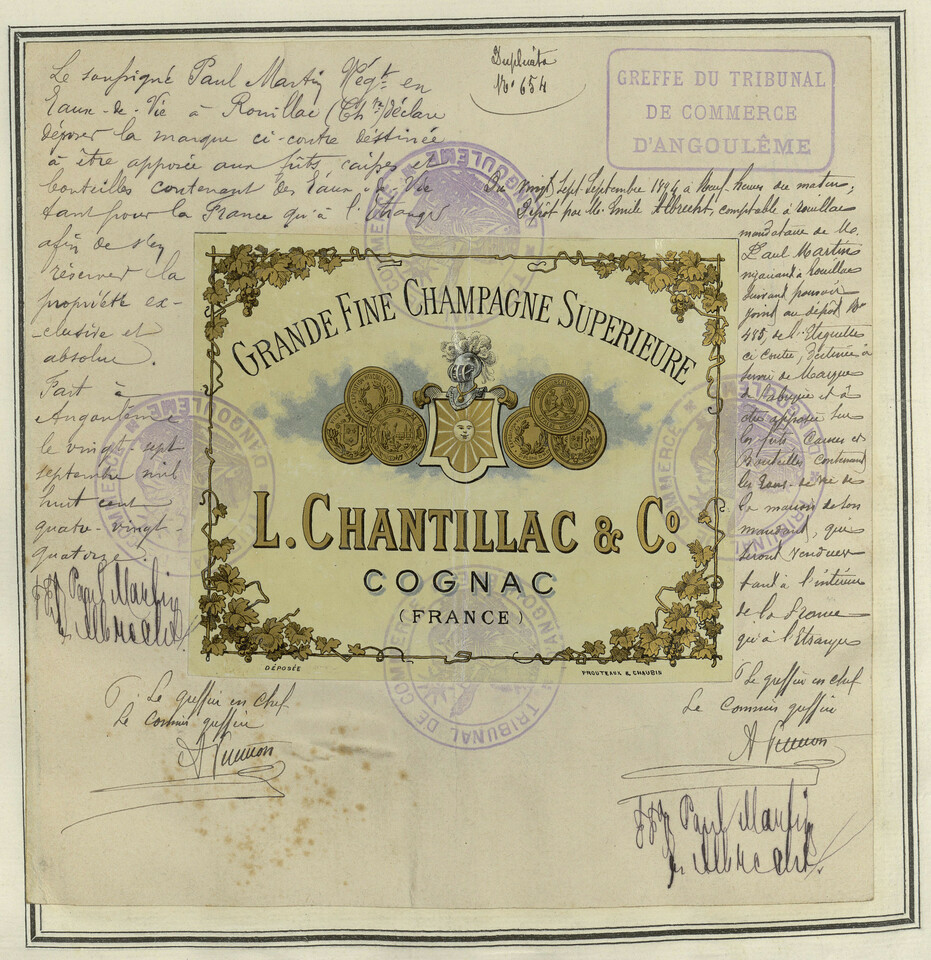 Le soussigné Paul Martin Négt. en
Eaux-de-Vie à Rouillac (Chte) déclare
déposer la marque ci-contre destinée
à être apposée aux fûts, caisses et
bouteilles contenant des Eaux-de-Vie
tant pour la France qu'à l'étranger
afin de s'en
réserver la
propriété ex-
-clusive et
absolue.
Fait à
Angoulême
le vingt-sept
septembre mil
huit cent
quatre-vingt-
quatorze.
Paul Martin
Albrecht
Le greffier en chef
Le Commis greffier
Duplicata
No. 654
GREFFE DU TRIBUNAL
DE COMMERCE
D'ANGOULÊME
Du vingt Sept Septembre 1894 à Neuf heures du matin,
Dépôt par Mr. Emile Albrecht, comptable à Rouillac
mandataire de M.
Paul Martin
négociant à Rouillac
suivant pouvoir
joint au dépôt No
485, de l'Etiquette
ci contre, destinée à
servir de Marque
de Fabrique et à
être apposée sur
les fûts Caisses et
Bouteilles contenant
les Eaux-de-vie de
la maison de son
mandant, qui
seront vendues
tant à l'intérieur
de la France
qu'à l'Etranger
Le greffier en chef
Le Commis greffier
Paul Martin
Albrecht
GRANDE FINE CHAMPAGNE SUPERIEURE
L. CHANTILLAC & Co.
COGNAC
(FRANCE)
DÉPOSÉE
PROUTEAUX & CHAUBIS
TRIBUNAL DE COMMERCE D'ANGOULÊME